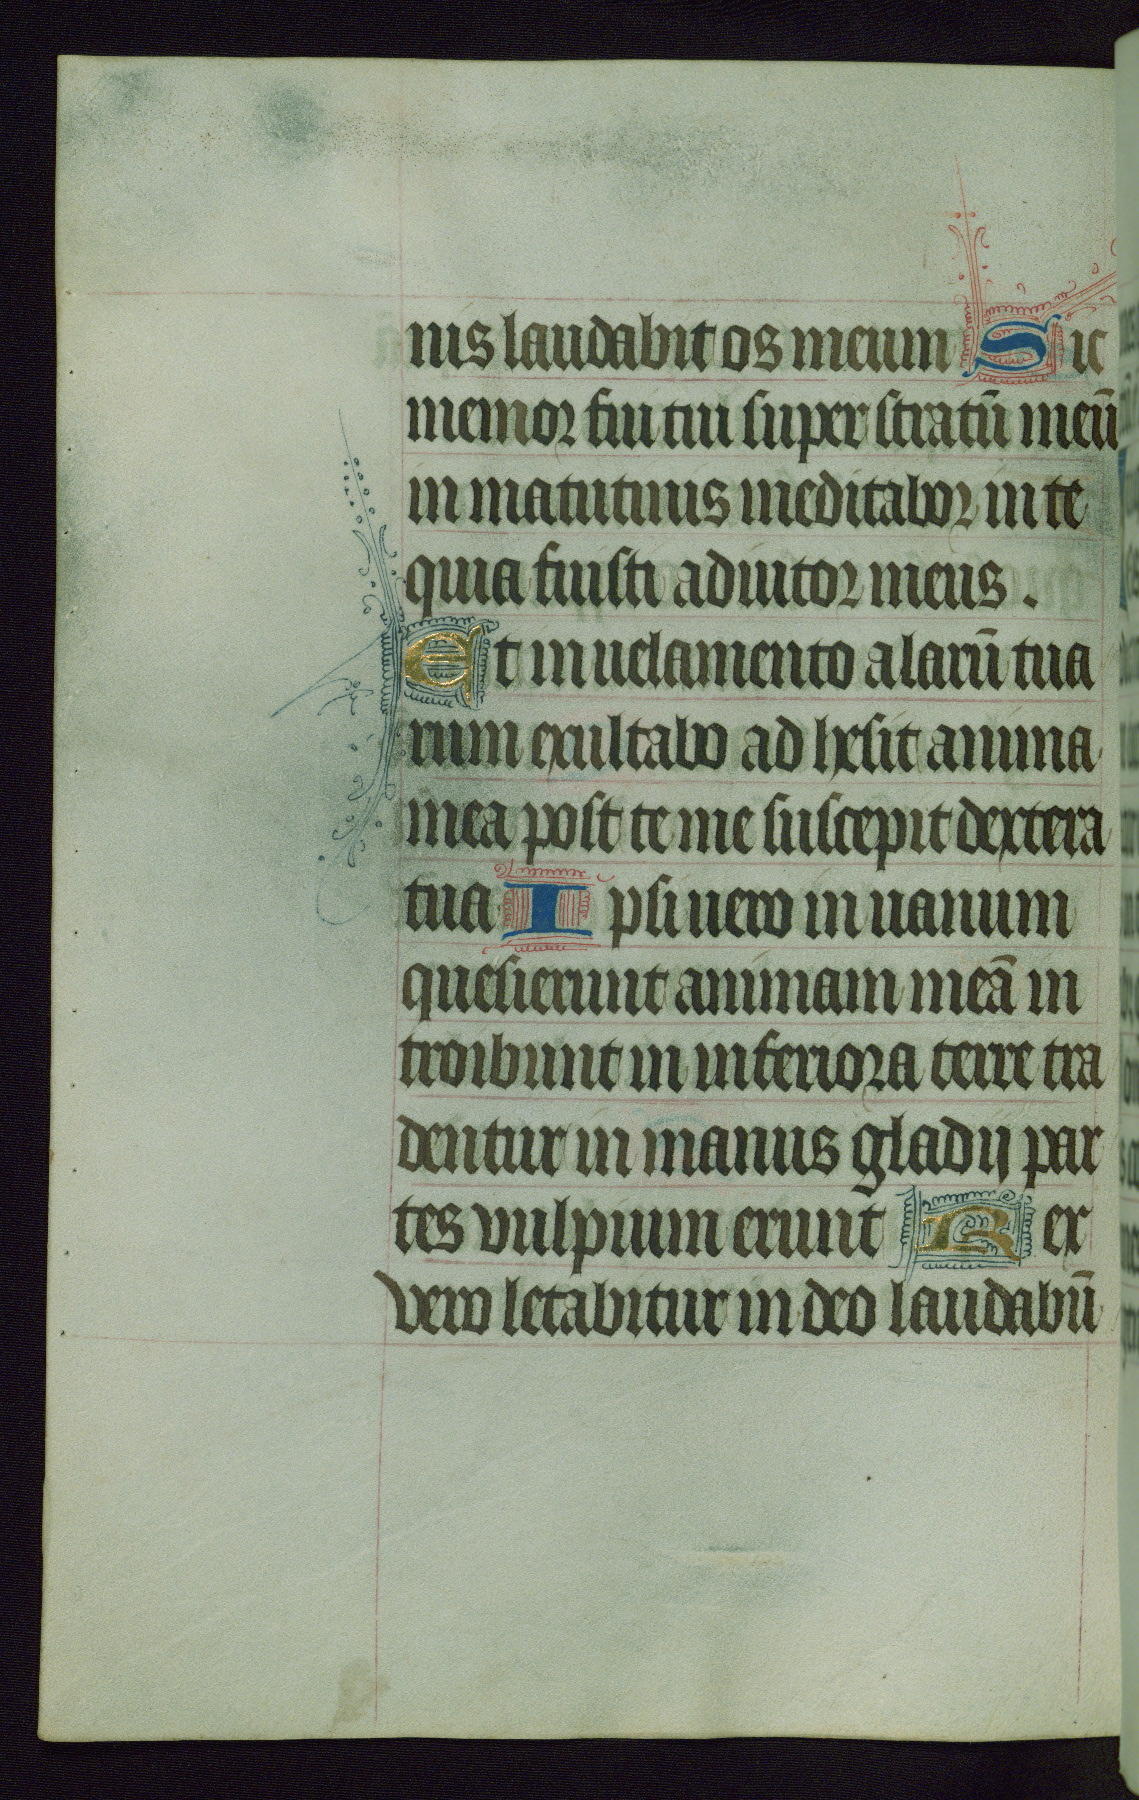 nis laudabit os meum Sic
memor fui tui super stratū meū
in matutinis meditabor in te
quia fuisti adiutor meus .
Et in uelamento alarū tua
rum exultabo ad hesit anima
mea post te me suscepit dextera
tua Ipsi uero in uanum
quesierunt animam meā in
troibunt in inferiora terre tra
dentur in manus gladij par
tes vulpium erunt Rex
vero letabitur in deo laudabū